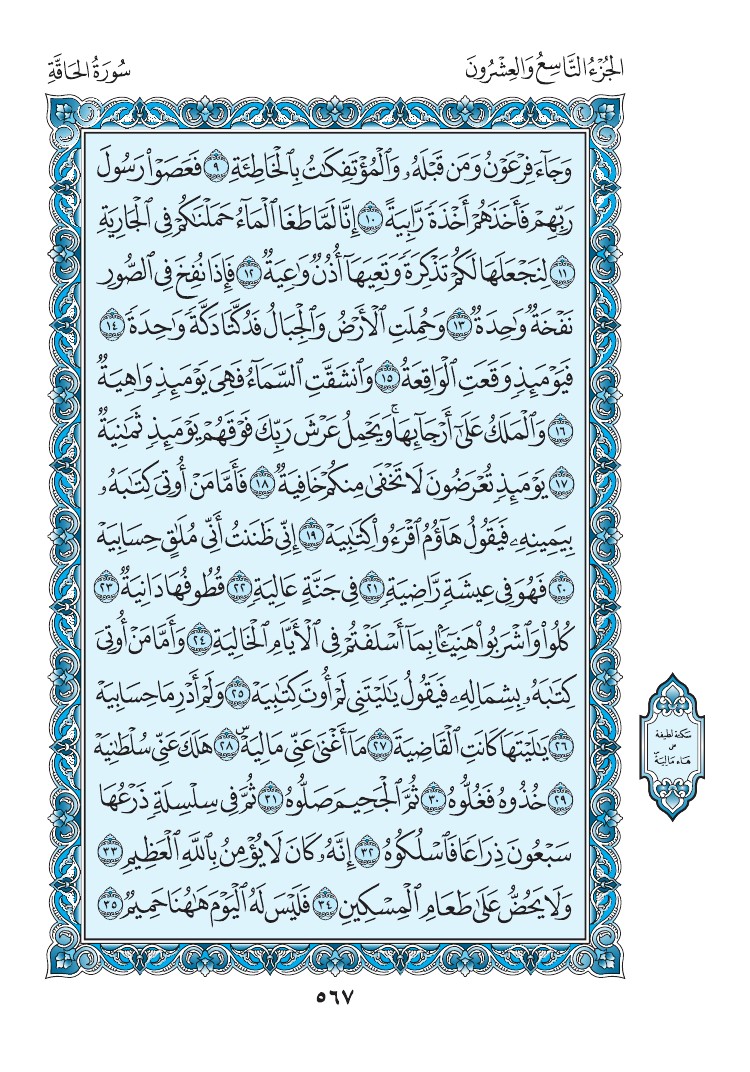 الجُزْءُ التَّاسِعُ وَالعِشْرُونَ
سُورَةُ الحَاقَّةِ
وَجَآءَ فِرْعَوْنُ وَمَن قَبْلَهُۥ وَٱلْمُؤْتَفِكَٰتُ بِٱلْخَاطِئَةِ ٩ فَعَصَوْا۟ رَسُولَ
رَبِّهِمْ فَأَخَذَهُمْ أَخْذَةً رَّابِيَةً ١٠ إِنَّا لَمَّا طَغَا ٱلْمَآءُ حَمَلْنَٰكُمْ فِى ٱلْجَارِيَةِ
١١ لِنَجْعَلَهَا لَكُمْ تَذْكِرَةً وَتَعِيَهَآ أُذُنٌ وَٰعِيَةٌ ١٢ فَإِذَا نُفِخَ فِى ٱلصُّورِ
نَفْخَةٌ وَٰحِدَةٌ ١٣ وَحُمِلَتِ ٱلْأَرْضُ وَٱلْجِبَالُ فَدُكَّتَا دَكَّةً وَٰحِدَةً ١٤
فَيَوْمَئِذٍ وَقَعَتِ ٱلْوَاقِعَةُ ١٥ وَٱنشَقَّتِ ٱلسَّمَآءُ فَهِىَ يَوْمَئِذٍ وَاهِيَةٌ
١٦ وَٱلْمَلَكُ عَلَىٰٓ أَرْجَآئِهَا ۚ وَيَحْمِلُ عَرْشَ رَبِّكَ فَوْقَهُمْ يَوْمَئِذٍ ثَمَٰنِيَةٌ
١٧ يَوْمَئِذٍ تُعْرَضُونَ لَا تَخْفَىٰ مِنكُمْ خَافِيَةٌ ١٨ فَأَمَّا مَنْ أُوتِىَ كِتَٰبَهُۥ
بِيَمِينِهِۦ فَيَقُولُ هَآؤُمُ ٱقْرَءُوا۟ كِتَٰبِيَهْ ١٩ إِنِّى ظَنَنتُ أَنِّى مُلَٰقٍ حِسَابِيَهْ
٢٠ فَهُوَ فِى عِيشَةٍ رَّاضِيَةٍ ٢١ فِى جَنَّةٍ عَالِيَةٍ ٢٢ قُطُوفُهَا دَانِيَةٌ ٢٣
كُلُوا۟ وَٱشْرَبُوا۟ هَنِيٓـًٔۢا بِمَآ أَسْلَفْتُمْ فِى ٱلْأَيَّامِ ٱلْخَالِيَةِ ٢٤ وَأَمَّا مَنْ أُوتِىَ
كِتَٰبَهُۥ بِشِمَالِهِۦ فَيَقُولُ يَٰلَيْتَنِى لَمْ أُوتَ كِتَٰبِيَهْ ٢٥ وَلَمْ أَدْرِ مَا حِسَابِيَهْ
٢٦ يَٰلَيْتَهَا كَانَتِ ٱلْقَاضِيَةَ ٢٧ مَآ أَغْنَىٰ عَنِّى مَالِيَهْ ۜ ٢٨ هَلَكَ عَنِّى سُلْطَٰنِيَهْ
٢٩ خُذُوهُ فَغُلُّوهُ ٣٠ ثُمَّ ٱلْجَحِيمَ صَلُّوهُ ٣١ ثُمَّ فِى سِلْسِلَةٍ ذَرْعُهَا
سَبْعُونَ ذِرَاعًا فَٱسْلُكُوهُ ٣٢ إِنَّهُۥ كَانَ لَا يُؤْمِنُ بِٱللَّهِ ٱلْعَظِيمِ ٣٣
وَلَا يَحُضُّ عَلَىٰ طَعَامِ ٱلْمِسْكِينِ ٣٤ فَلَيْسَ لَهُ ٱلْيَوْمَ هَٰهُنَا حَمِيمٌ ٣٥
سَكتَة لَطيفَة
عَلى
هَاء مَالِيَهْ
٥٦٧